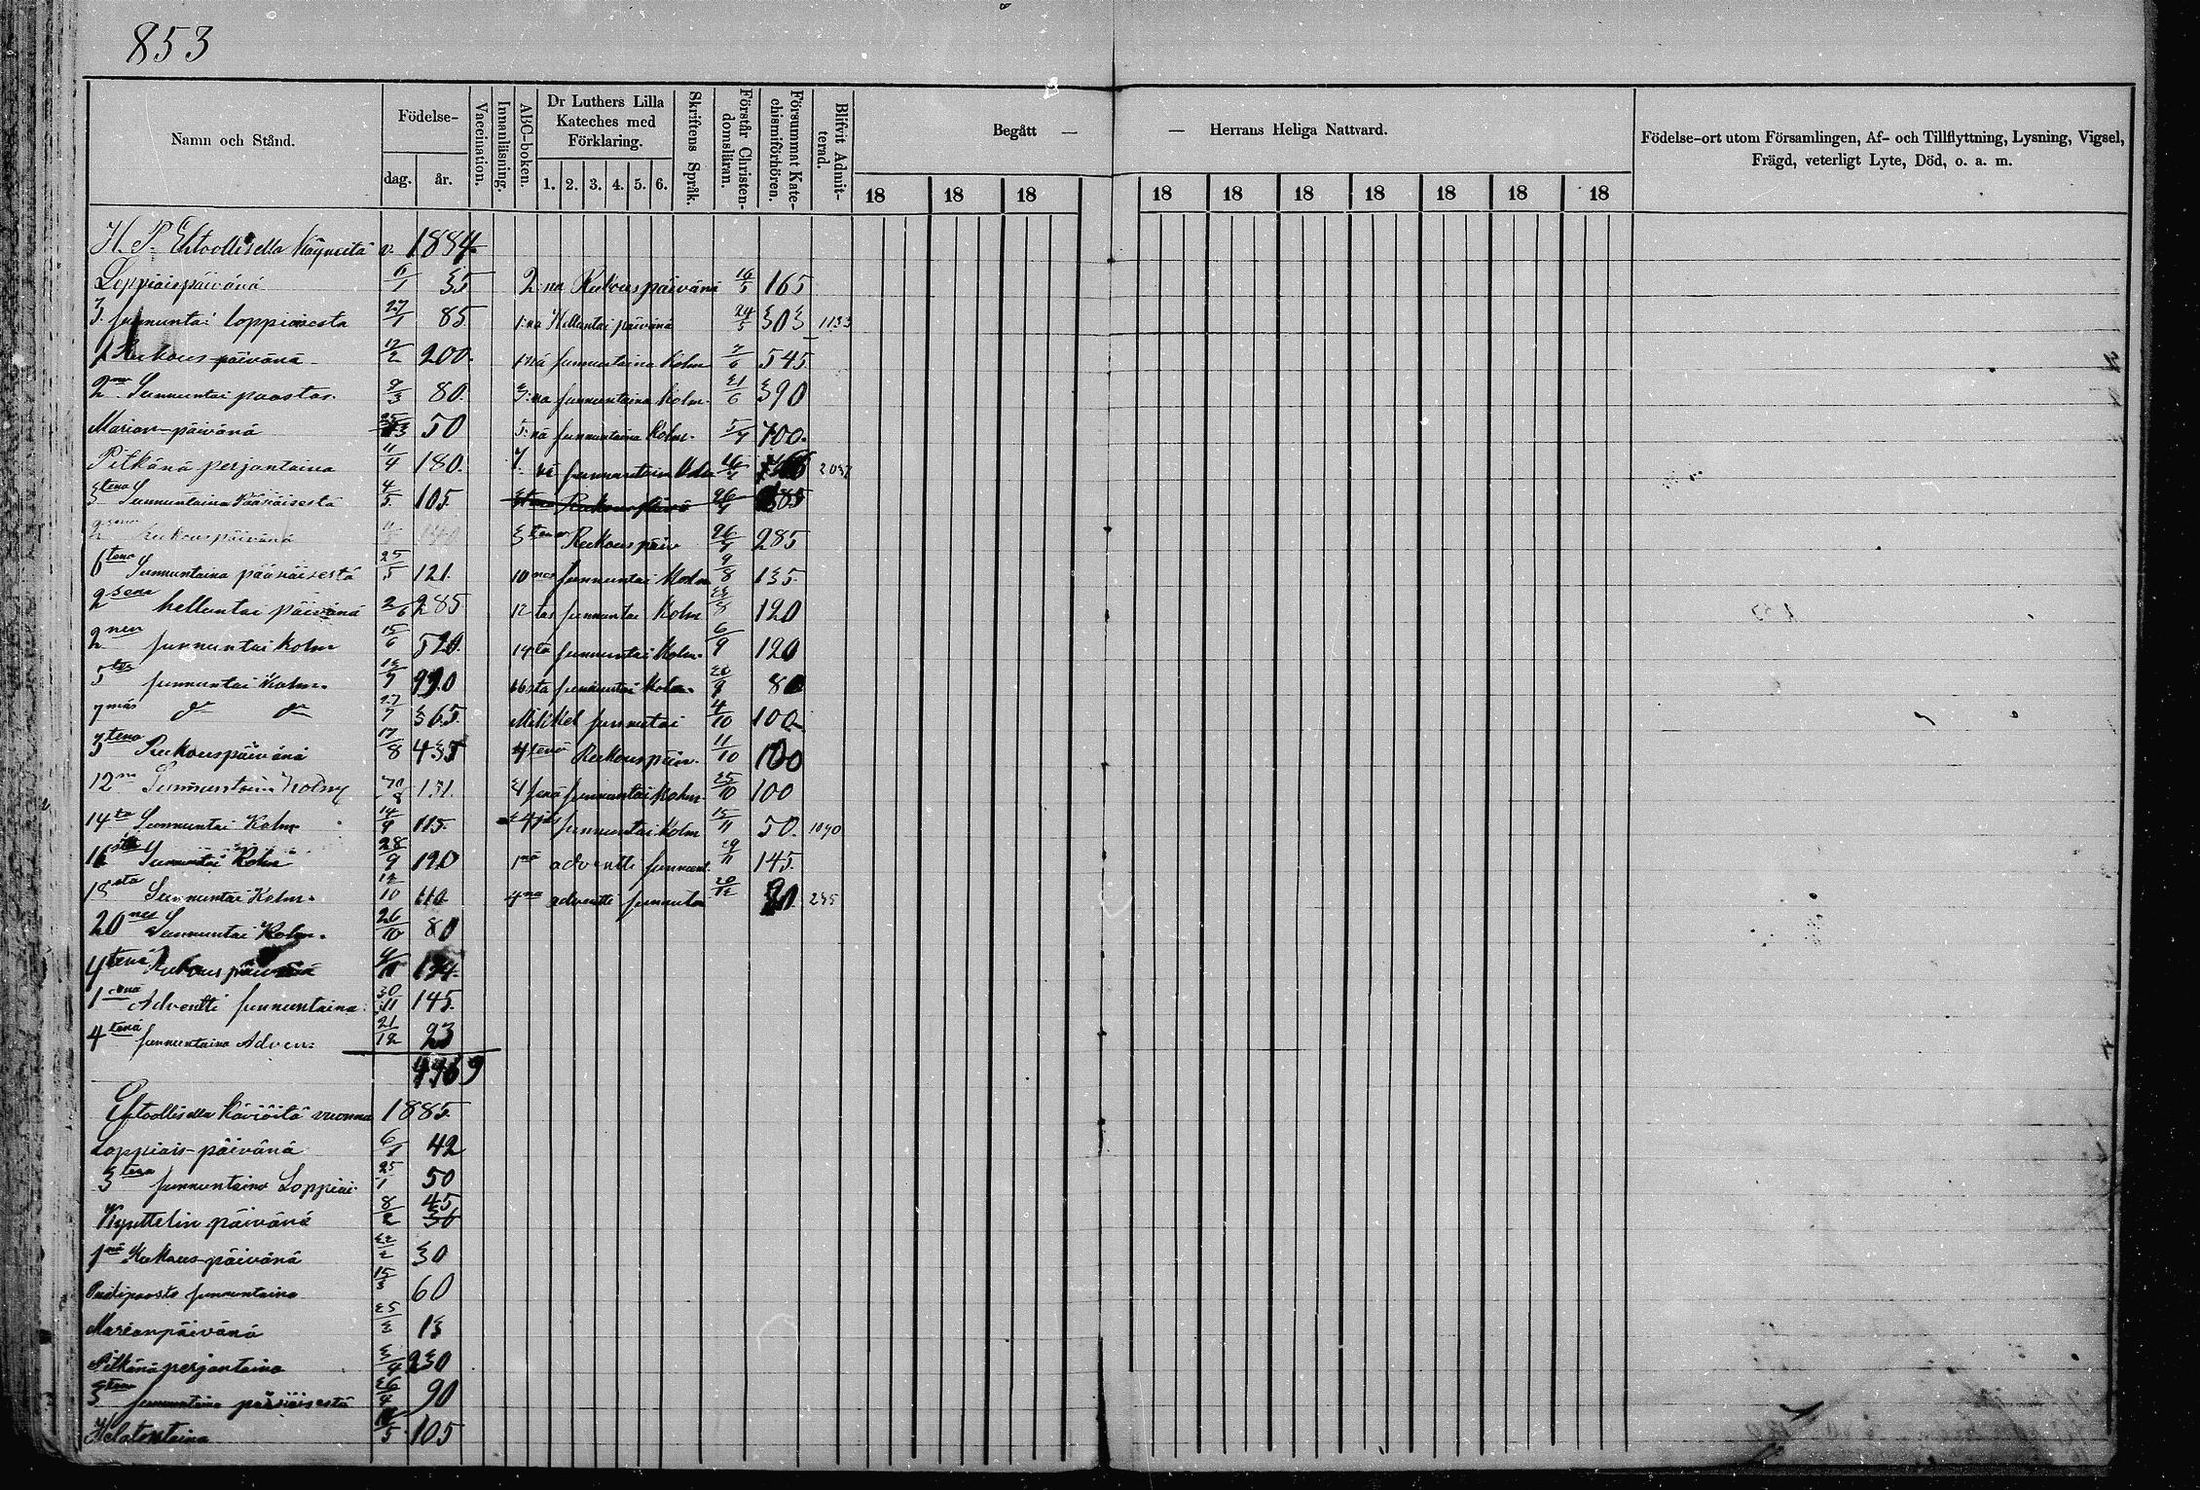 853
Namn och Stånd.
Födelse-
dag.
år.
Vaccination.
Innanläsning.
ABC-boken.
Dr Luthers Lilla
Kateches med
Förklaring.
1. 2. 3. 4. 5. 6.
Skriftens Språk.
Förstår Christen-
domsläran.
Försummat Kate-
chismiförhören.
Blifvit Admit-
terad.
Begått —
— Herrans Heliga Nattvard.
18 18 18 18 18 18 18 18 18 18
Födelse-ort utom Församlingen, Af- och Tillflyttning, Lysning, Vigsel,
Frägd, veterligt Lyte, Död, o. a. m.
H. P. Ehtoollisella käyneitä v. 1884.
Loppiaispäivänä 6/1 35
3. sunnuntai loppiaisesta 27/1 85
1 Rukous-päivänä 12/2 200.
2 Sunnuntai paastos. 9/3 80.
Marian-päivänä 25/3 50
Pitkänä perjantaina 11/4 180.
3 tena Sunnuntaina Pääsiäisestä 4/5 105.
2 sena Rukouspäivänä
6 tena Sunnuntaina pääsiäisestä 25/5 121.
2 sena helluntai päivänä 2/6 285
2 nen sunnuntai kolm 15/6 520.
5 tes sunnuntai Kolm. 13/7
7 mäs do do 27/7 365.
3 tena Rukouspäivänä 17/8 435
12 Sunnuntaina Kolmy 131.
14 ta Sunnuntai Kolm 14/9 115.
16 sta Sunnuntai Kolm 28/9 120
18 sta Sunnuntai Kolm. 12/10 110
20 nes Sunnuntai Kolm. 26/10 80
4 tenä Rukouspäivänä
1 senä Adventti sunnuntaina 30/11 145.
4 tenä sunnuntaina Adven: 21/12 23
Ehtoollisella käviöitä vuonna 1885.
Loppiais-päivänä 6/1 42
3 tena sunnuntaina Loppiai 25/1 50
Kynttelin päivänä 8/2 45
30
1 nä Rukous-päivänä 22/2 30
Puolipaasto sunnuntaina 15/3 60
Marianpäivänä 25/3 13
Pitkänä perjantaina 3/4 230
3 tena sunnuntaina pääsiäisestä 26/4 90
Helatorstaina 105
2 na Rukouspäivänä 165
1:na Helluntai päivänä 24/5 303 1133
1:nä sunnuntaina Kolm 7/6 545
3:na sunnuntaina Kolm. 21/6 390
5:nä sunnuntaina Kolm. 5/7 700.
3 tena Rukouspäiv 26/7 285
10 nes sunnuntai Kolm 9/8 135.
12 tas sunnuntai Kolm 23/8 120
14 tä sunnuntai Kolm. 6/9 120
16 sta sunnuntai Kolm. 20/9 80
Mikkel sunnutai 4/10 100
4 tenä Rukouspäiv. 11/10 100
sunnuntai Kolm. 25/10 100
sunnuntai Kolm 15/11 50. 1090
1 nä adventti sunnunt. 29/11 145.
4 na adventti sunnunta 20/12 90. 235